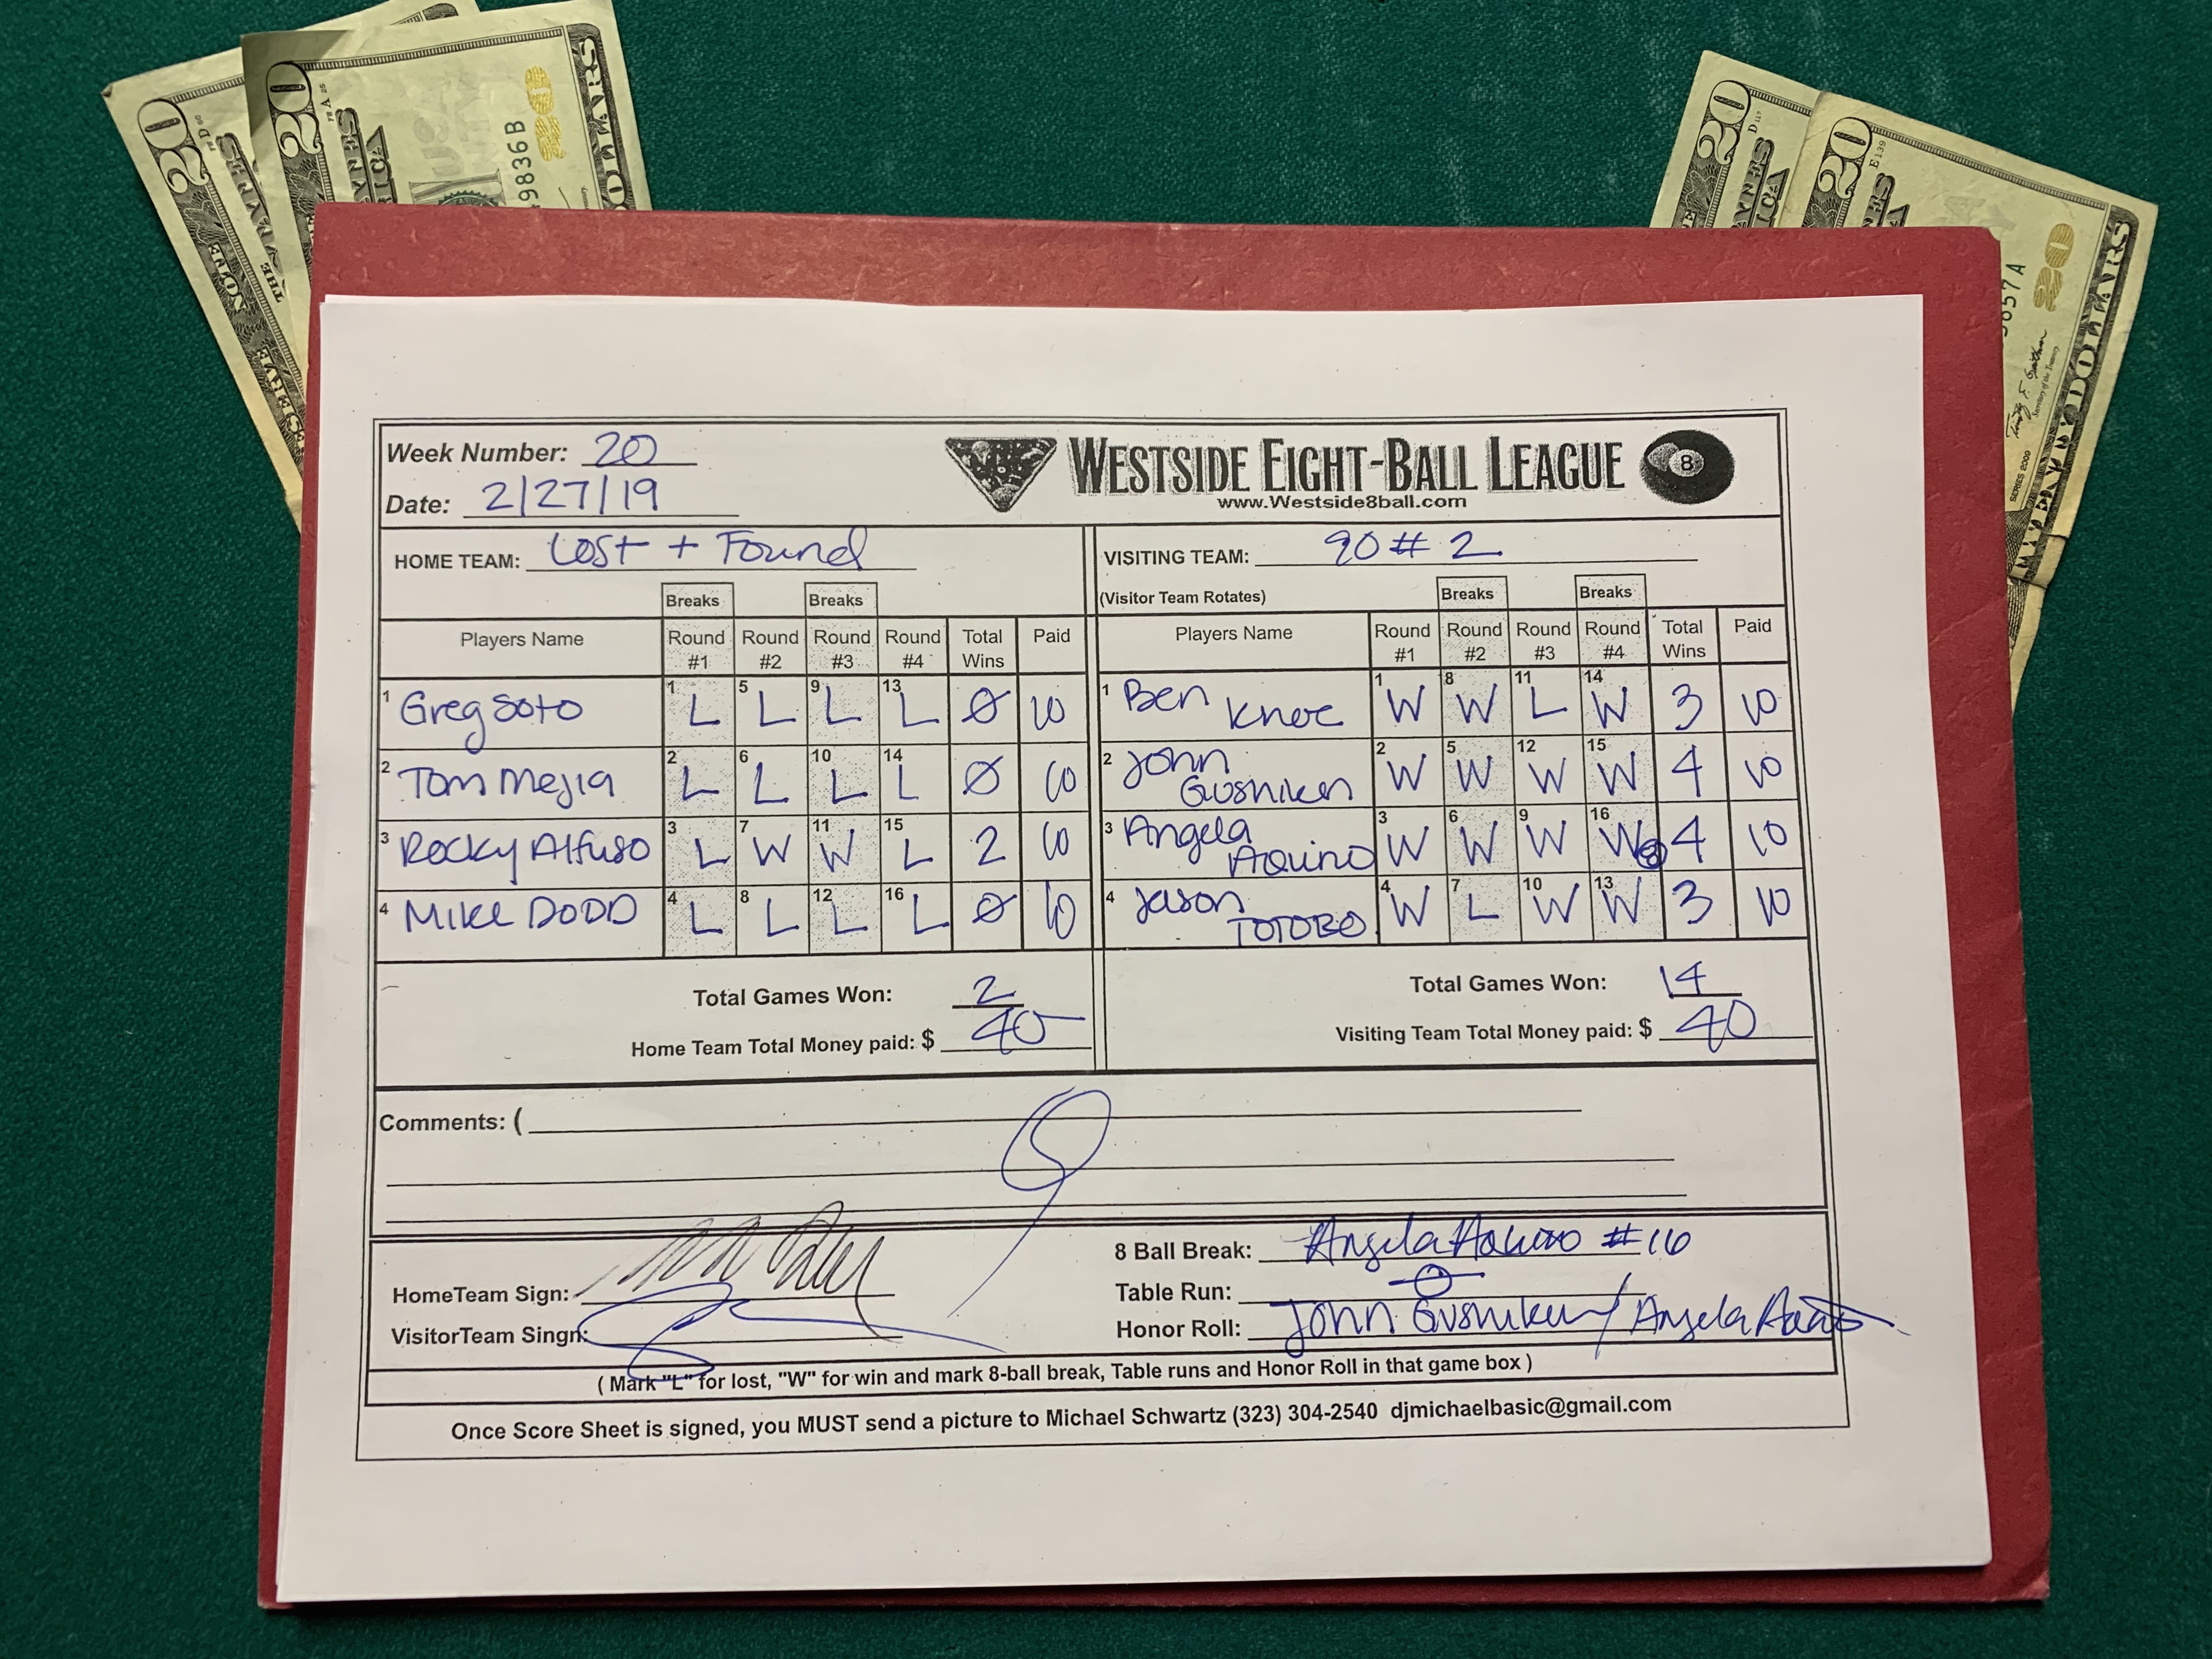 20 20 DOLLARS
49836B
20 20 DOLLARS
5657A
SERIES 2009
Week Number: 20
WESTSIDE EIGHT-BALL LEAGUE 8
Date: 2/27/19
www.Westside8ball.com
HOME TEAM: Lost + Found
VISITING TEAM: 90 # 2
Breaks Breaks
(Visitor Team Rotates) Breaks Breaks
Players Name Round #1 Round #2 Round #3 Round #4 Total Wins Paid
Players Name Round #1 Round #2 Round #3 Round #4 Total Wins Paid
1 Greg Soto 1 L 5 L 9 L 13 L 0 10
1 Ben Knoc 1 W 8 W 11 L 14 W 3 10
2 Tom Mejia 2 L 6 L 10 L 14 L 0 10
2 John Gushiken 2 W 5 W 12 W 15 W 4 10
3 Rocky Alfuso 3 L 7 W 11 W 15 L 2 10
3 Angela Aquino 3 W 6 W 9 W 16 W 8 4 10
4 MIKE DODD 4 L 8 L 12 L 16 L 0 10
4 Jason TOTORO 4 W 7 L 10 W 13 W 3 10
Total Games Won: 2
Total Games Won: 14
Home Team Total Money paid: $ 40
Visiting Team Total Money paid: $ 40
Comments: (
8 Ball Break: Angela Aquino #16
HomeTeam Sign:
Table Run: 0
VisitorTeam Singn:
Honor Roll: John Gushiken / Angela Aquino
( Mark "L" for lost, "W" for win and mark 8-ball break, Table runs and Honor Roll in that game box )
Once Score Sheet is signed, you MUST send a picture to Michael Schwartz (323) 304-2540 djmichaelbasic@gmail.com